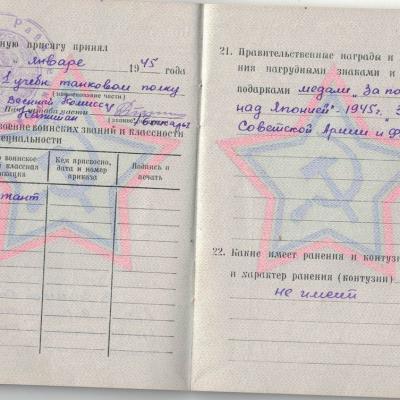 ную присягу принял
январе 1945 года
1 учебн. танковом полку
(наименование части)
Военный Комиссар
(звание)
воение воинских знаний и классности
ециальности
воинское
классная
кация
Кем присвоено,
дата и номер
приказа
Подпись и
печать
тант
21. Правительственные награды и
ния нагрудными знаками и
подарками медали „За по
над Японией" 1945г.
Советской Армии и Ф
22. Какие имеет ранения и контузи
и характер ранения (контузии)
не имеет